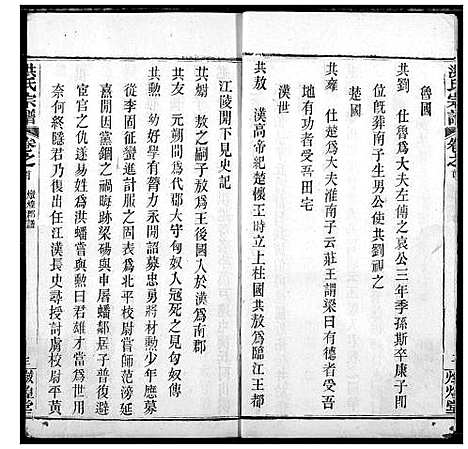 洪氏宗譜
卷之首
敦煌堂
魯國
共劉　仕魯爲大夫左傳之哀公三年季孫斯卒康子卽
位旣葬南子生男公使共劉視之
楚國
共雍　仕楚爲大夫淮南子云莊王謂梁曰有德者受吾
地有功者受吾田宅
漢世
共敖　漢高帝紀楚懷王時立上柱國共敖爲臨江王都
江陵閒下見史記
共嬀　敖之嗣子放爲王後國入於漢爲南郡
共友　元朔間爲代郡大守匈奴人冦死之見匈奴傳
共　少好學有膂力永開詔募忠勇將材勲少年應募
從李固征蠻進計服之固表爲北平校尉嘗師范滂延
熹開因黨錮之禍晦跡梁碭與申屠蟠鄰居子普爲
宦官之仇遂易姓爲洪蟠嘗與勲曰君雄才當爲世用
奈何終隱君乃復出任江漢長史尋授討虜校尉平黃
洪氏宗譜
卷之首
燉煌郡譜
三
燉煌堂